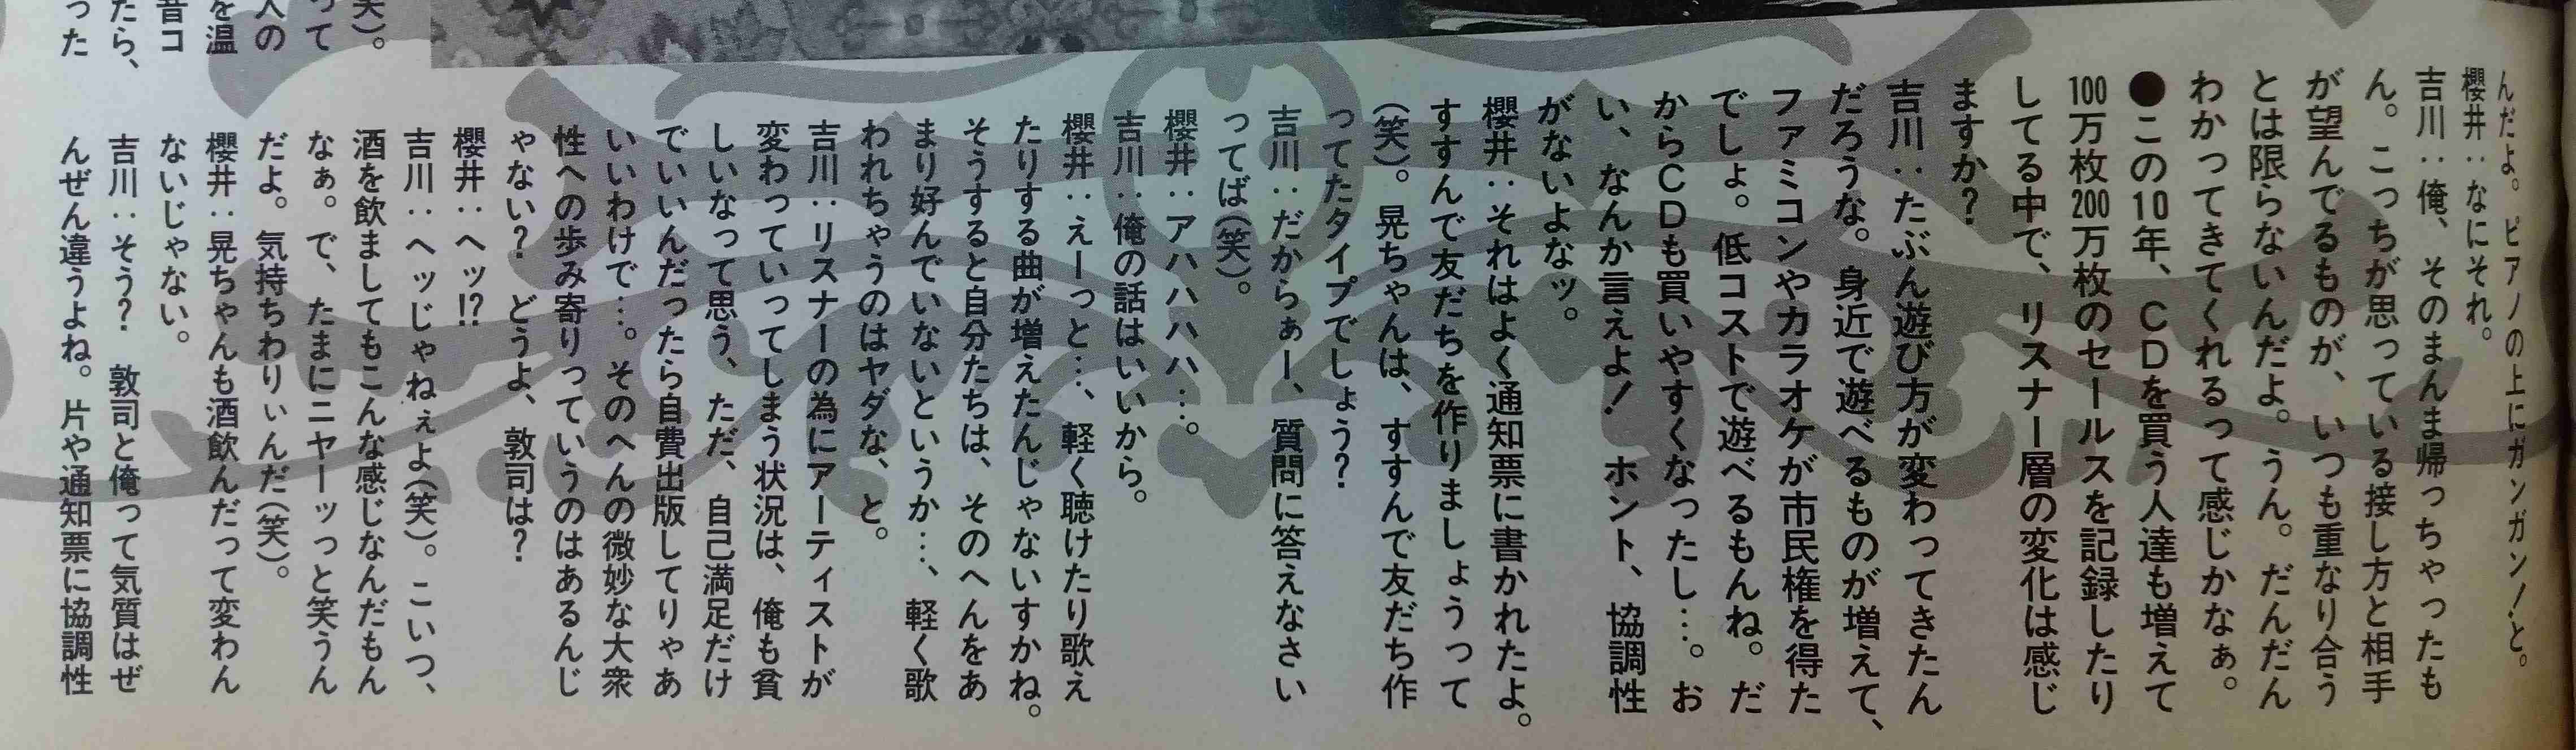 んだよ。ピアノの上にガンガン！と。
櫻井：なにそれ。
吉川：俺、そのまんま帰っちゃったも
ん。こっちが思っている接し方と相手
が望んでるものが、いつも重なり合う
とは限らないんだよ。うん。だんだん
わかってきてくれるって感じかなぁ。
●この10年、ＣＤを買う人達も増えて
100万枚200万枚のセールスを記録したり
してる中で、リスナー層の変化は感じ
ますか？
吉川：たぶん遊び方が変わってきたん
だろうな。身近で遊べるものが増えて、
ファミコンやカラオケが市民権を得た
でしょ。低コストで遊べるもんね。だ
からＣＤも買いやすくなったし…。お
い、なんか言えよ！ ホント、協調性
がないよなッ。
櫻井：それはよく通知票に書かれたよ。
すすんで友だちを作りましょうって
（笑）。晃ちゃんは、すすんで友だち作
ってたタイプでしょう？
吉川：だからぁー、質問に答えなさい
ってば（笑）。
櫻井：アハハハハ…。
吉川：俺の話はいいから。
櫻井：えーっと…、軽く聴けたり歌え
たりする曲が増えたんじゃないすかね。
そうすると自分たちは、そのへんをあ
まり好んでいないというか…、軽く歌
われちゃうのはヤダな、と。
吉川：リスナーの為にアーティストが
変わっていってしまう状況は、俺も貧
しいなって思う、ただ、自己満足だけ
でいいんだったら自費出版してりゃあ
いいわけで…。そのへんの微妙な大衆
性への歩み寄りっていうのはあるんじ
ゃない？ どうよ、敦司は？
櫻井：ヘッ!?
吉川：ヘッじゃねぇよ（笑）。こいつ、
酒を飲ましてもこんな感じなんだもん
なぁ。で、たまにニヤーッっと笑うん
だよ。気持ちわりぃんだ（笑）。
櫻井：晃ちゃんも酒飲んだって変わん
ないじゃない。
吉川：そう？ 敦司と俺って気質はぜ
んぜん違うよね。片や通知票に協調性
笑）。
って
人の
を温
音コ
たら、
った